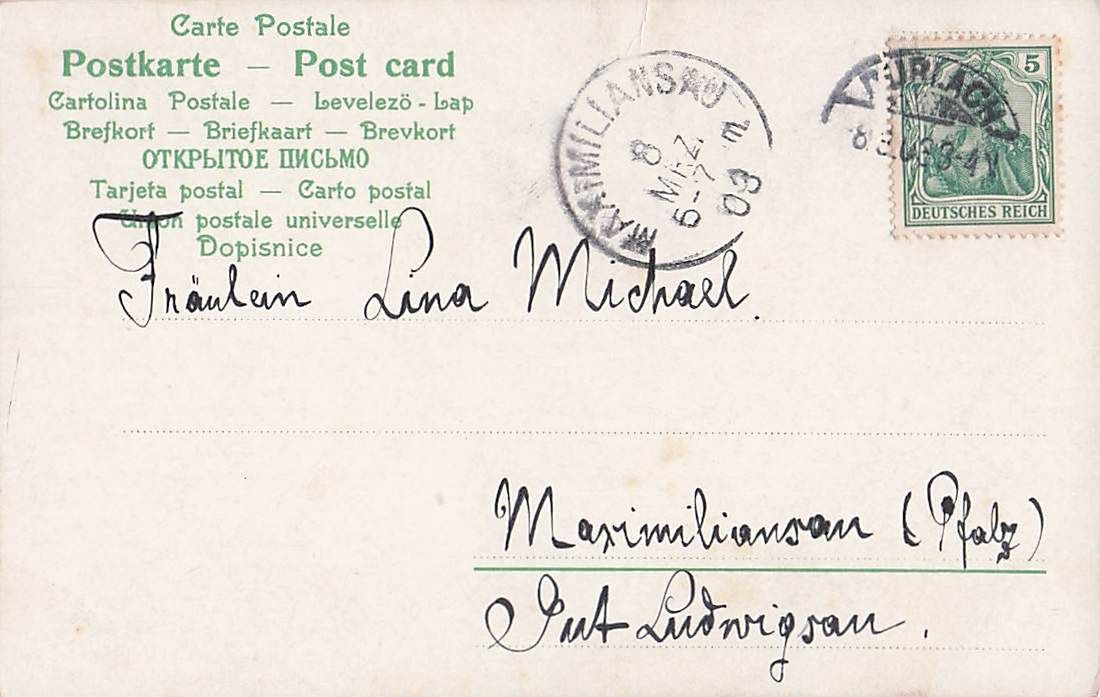 Carte Postale
Postkarte — Post card
Cartolina Postale — Levelezö - Lap
Brefkort — Briefkaart — Brevkort
ОТКРЫТОЕ ПИСЬМО
Tarjeta postal — Carto postal
Union postale universelle
Dopisnice
MAXIMILIANSAU
8
MRZ
6-7
03
DURLACH
5
DEUTSCHES REICH
Fräulein Lina Michael.
Maximiliansau (Pfalz)
Gut Ludwigsau.